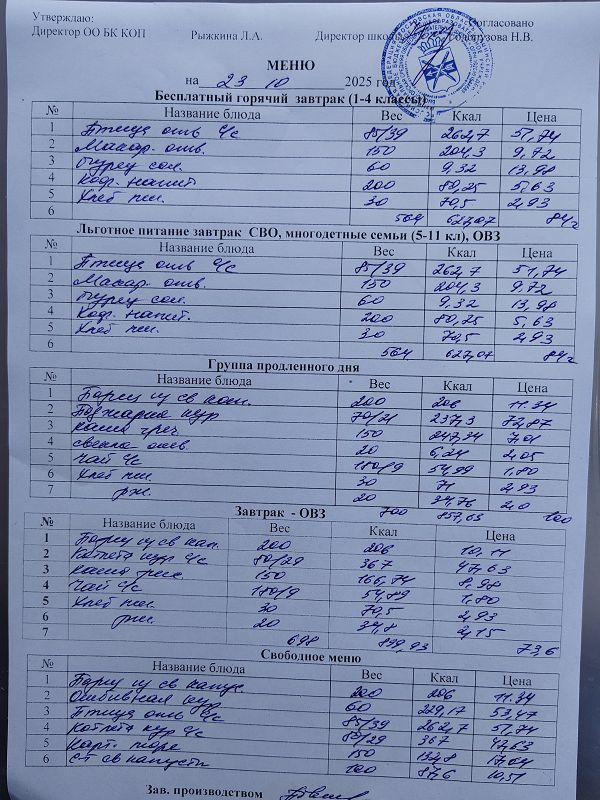 Утверждаю: Согласовано
Директор ОО БК КОП Рыжкина Л.А. Директор школы Н.В.
МЕНЮ
на 23 10 2025 год
Бесплатный горячий завтрак (1-4 классы)
№ Название блюда Вес Ккал Цена
1 Птица отв с/с 85/39 262,7 51,74
2 Макар. отв. 150 204,3 9,72
3 Огурец сол. 60 9,32 13,98
4 Коф. напит 200 80,25 5,63
5 Хлеб пш. 30 70,5 2,93
6 564 627,07 84
Льготное питание завтрак СВО, многодетные семьи (5-11 кл), ОВЗ
№ Название блюда Вес Ккал Цена
1 Птица отв с/с 85/39 262,7 51,74
2 Макар. отв. 150 204,3 9,72
3 Огурец сол. 60 9,32 13,98
4 Коф. напит. 200 80,25 5,63
5 Хлеб пш. 30 70,5 2,93
6 564 627,07 84
Группа продленного дня
№ Название блюда Вес Ккал Цена
1 Борщ из св кап. 200 206 11.34
2 Поджарка кур 70/21 237,3 72,87
3 Каша греч 150 7,01
4 свекла отв. 20 6,24 2,05
5 Чай с/с 180/9 54,99 1,80
6 Хлеб пш. 30 71 2,93
7 рж. 20 34,76 2,0
700 857,63 100
Завтрак - ОВЗ
№ Название блюда Вес Ккал Цена
1 Борщ из св кап. 200 206 10,11
2 Котлета кур с/с 80/29 367 47,63
3 Каша 150 166,74 8.98
4 Чай с/с 180/9 54,89 1,80
5 Хлеб пш. 30 70,5 2,93
6 рж. 20 34,8 2,15
7 698 899,93 73,6
Свободное меню
№ Название блюда Вес Ккал Цена
1 Борщ из св капус 200 206 11.34
2 Отбивная кур 60 229,17 53,47
3 Птица отв с/с 85/39 262,7 51,74
4 Котлета кур с/с 80/29 367 47,63
5 Карт. пюре 150 132,8 17,04
6 С-т св капусты 100 87,6 10,51
Зав. производством